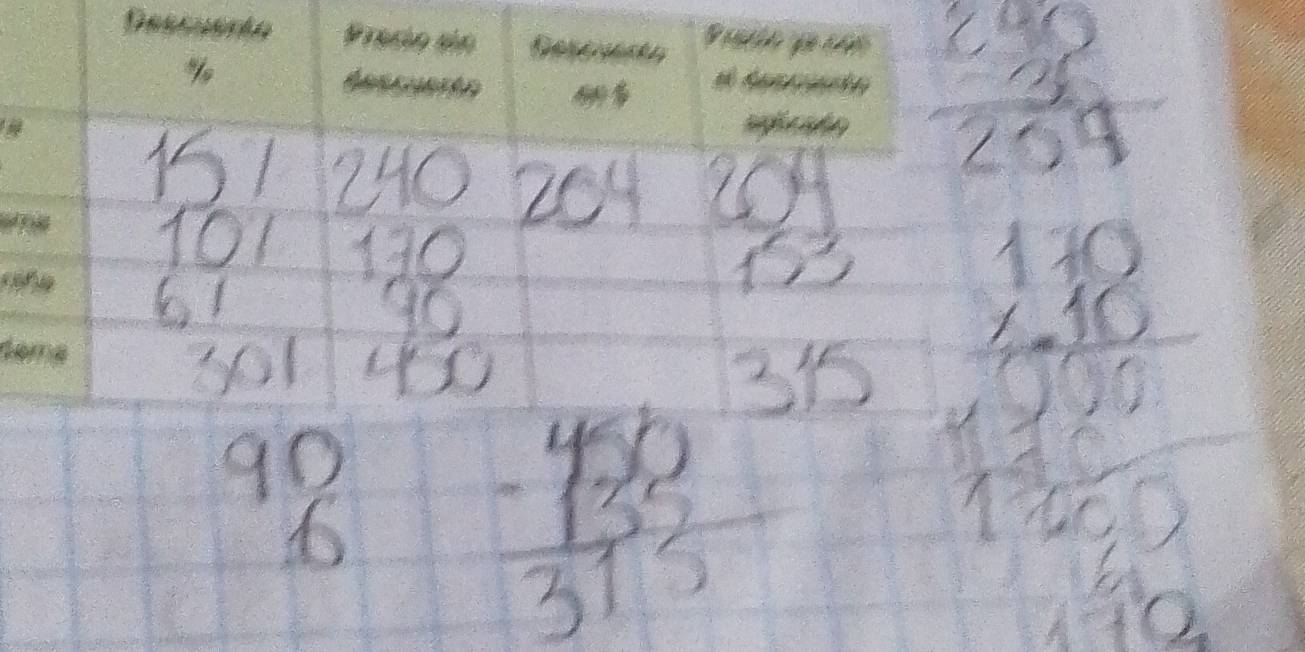 Descuento % Precio sin descuento Descuento en $ Precio ya con el descuento aplicado
15% 240 204 204
10% 170 153
6% 90
30% 450 315
240
- 36
204
170
x .10
000
170
1700
90
6
450
- 135
315
170